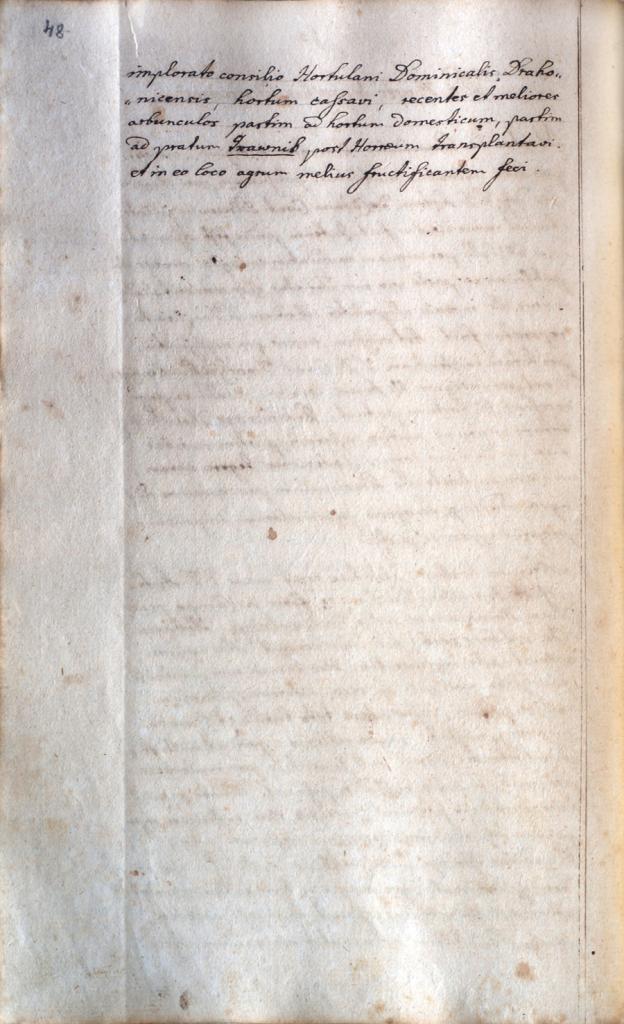 48
implorato consilio Hortulani Dominicalis Draho„
„nicensis, hortum cassavi, recentes et meliores
arbunculos partim ad hortum domesticum, partim
ad pratum Trawnik post Horreum transplantavi.
et in eo loco agrum melius fructificantem feci.